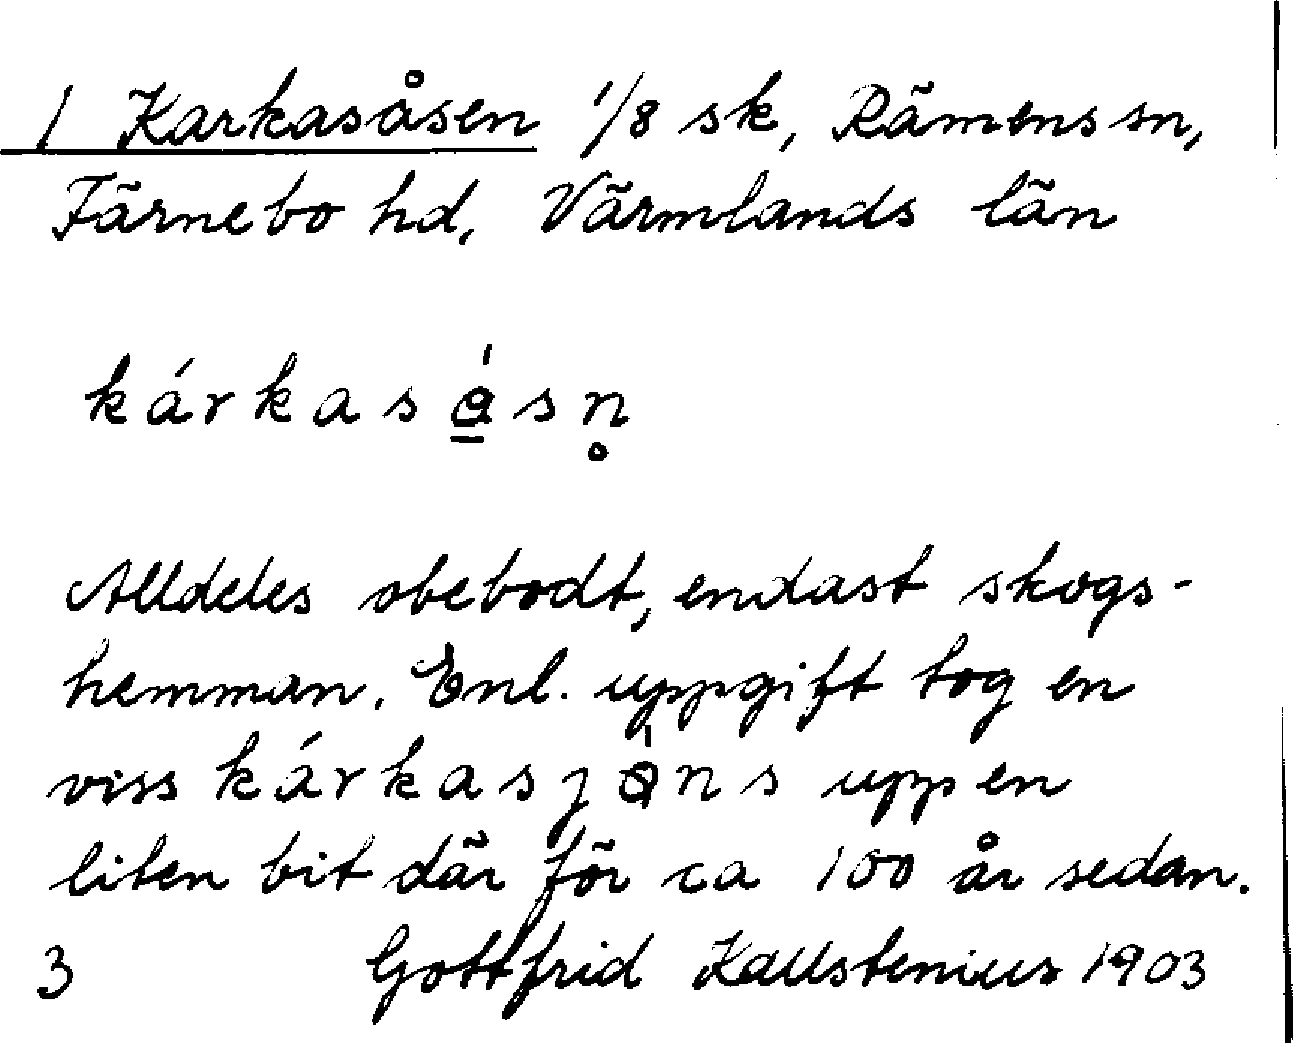 1 Karkasåsen 1/8 sk, Rämens sn,
Färnebo hd, Värmlands län
kárkasåsn̥
Alldeles obebodt, endast skogs-
hemman. Enl. uppgift tog en
viss kárkasjöns upp en
liten bit där för ca 100 år sedan.
3 Gottfrid Kallstenius 1903